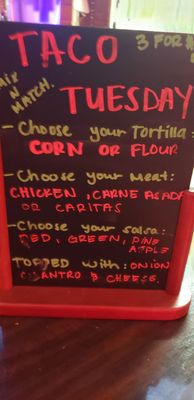 TACO 3 FOR
MIX N MATCH.
TUESDAY
- Choose your Tortilla:
CORN OR FLOUR
- Choose your Meat:
CHICKEN, CARNE ASADA
OR CARITAS
- Choose your salsa:
RED, GREEN, PINE
APPLE
TOPPED with: ONION
CILANTRO & CHEESE.